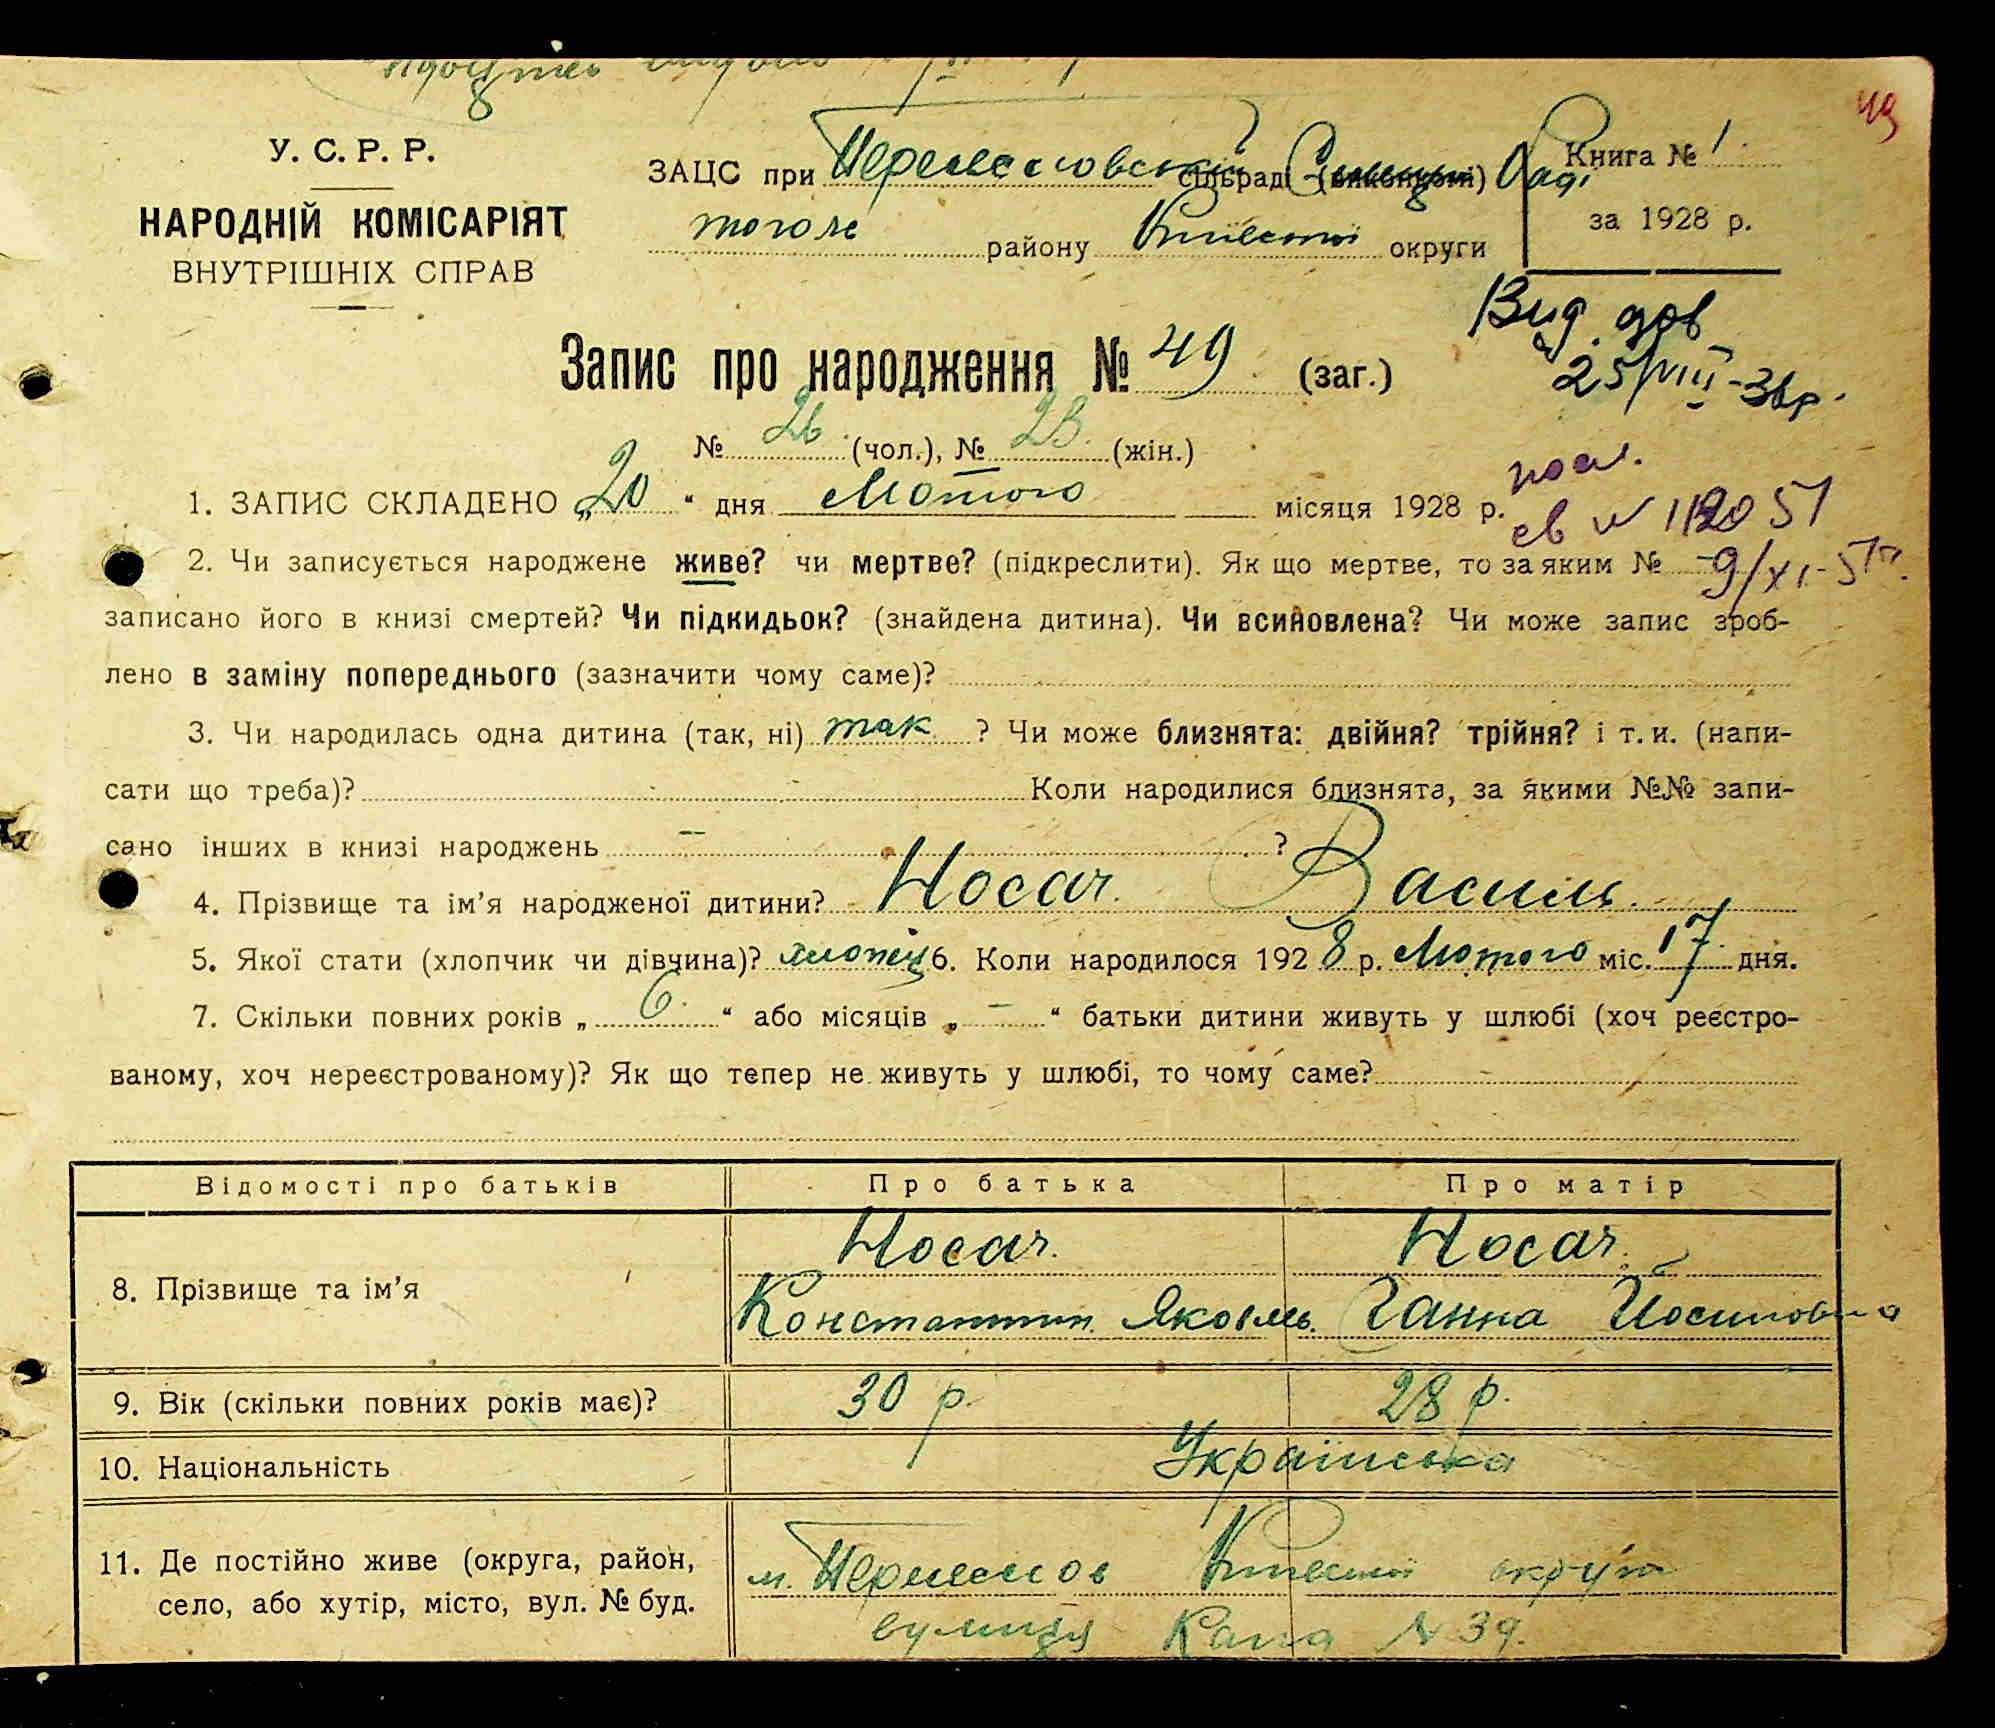 49
У. С. Р. Р.
НАРОДНІЙ КОМІСАРІЯТ
ВНУТРІШНІХ СПРАВ
ЗАЦС при сільраді (виконкомі)
того ж району Київської округи
Книга № 1
за 1928 р.
Вид. дов
25/VIII-36р.
Запис про народження № 49 (заг.)
№ 26 (чол.), № 23 (жін.)
1. ЗАПИС СКЛАДЕНО „20“ дня Лютого місяця 1928 р.
св № 112051
9/XI-51
2. Чи записується народжене живе? чи мертве? (підкреслити). Як що мертве, то за яким № -
записано його в книзі смертей? Чи підкидьок? (знайдена дитина). Чи всиновлена? Чи може запис зроб-
лено в заміну попереднього (зазначити чому саме)?
3. Чи народилась одна дитина (так, ні) так ? Чи може близнята: двійня? трійня? і т. и. (напи-
сати що треба)? Коли народилися близнята, за якими №№ запи-
сано інших в книзі народжень - ?
4. Прізвище та ім’я народженої дитини? Носач Василь.
5. Якої стати (хлопчик чи дівчина)? хлопець 6. Коли народилося 1928 р. Лютого міс. 17 дня.
7. Скільки повних років „ 6 “ або місяців „ - “ батьки дитини живуть у шлюбі (хоч реєстро-
ваному, хоч нереєстрованому)? Як що тепер не живуть у шлюбі, то чому саме?
Відомості про батьків Про батька Про матір
8. Прізвище та ім’я Носач. Носач.
Константин Яковль. Ганна Йосиповна
9. Вік (скільки повних років має)? 30 р. 28 р.
10. Національність Українська
11. Де постійно живе (округа, район,
село, або хутір, місто, вул. № буд.
м. Київської округи
вулиця № 39.